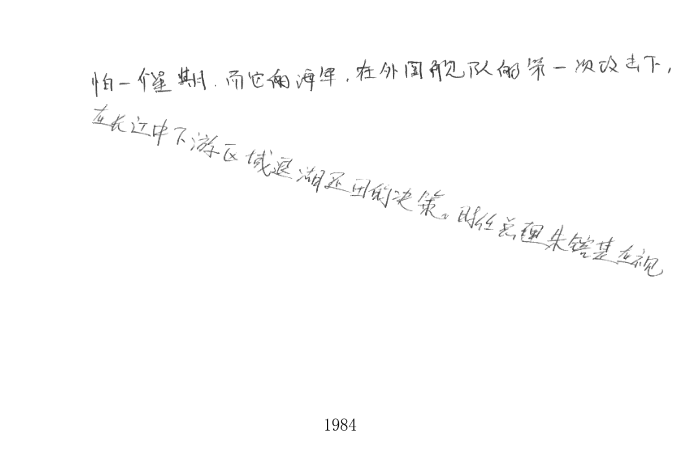 怕一个星期.而它的海军,在外国舰队的第一次攻击下,
在长江中下游区域退湖还田的决策。时任总理朱镕基在视
1984